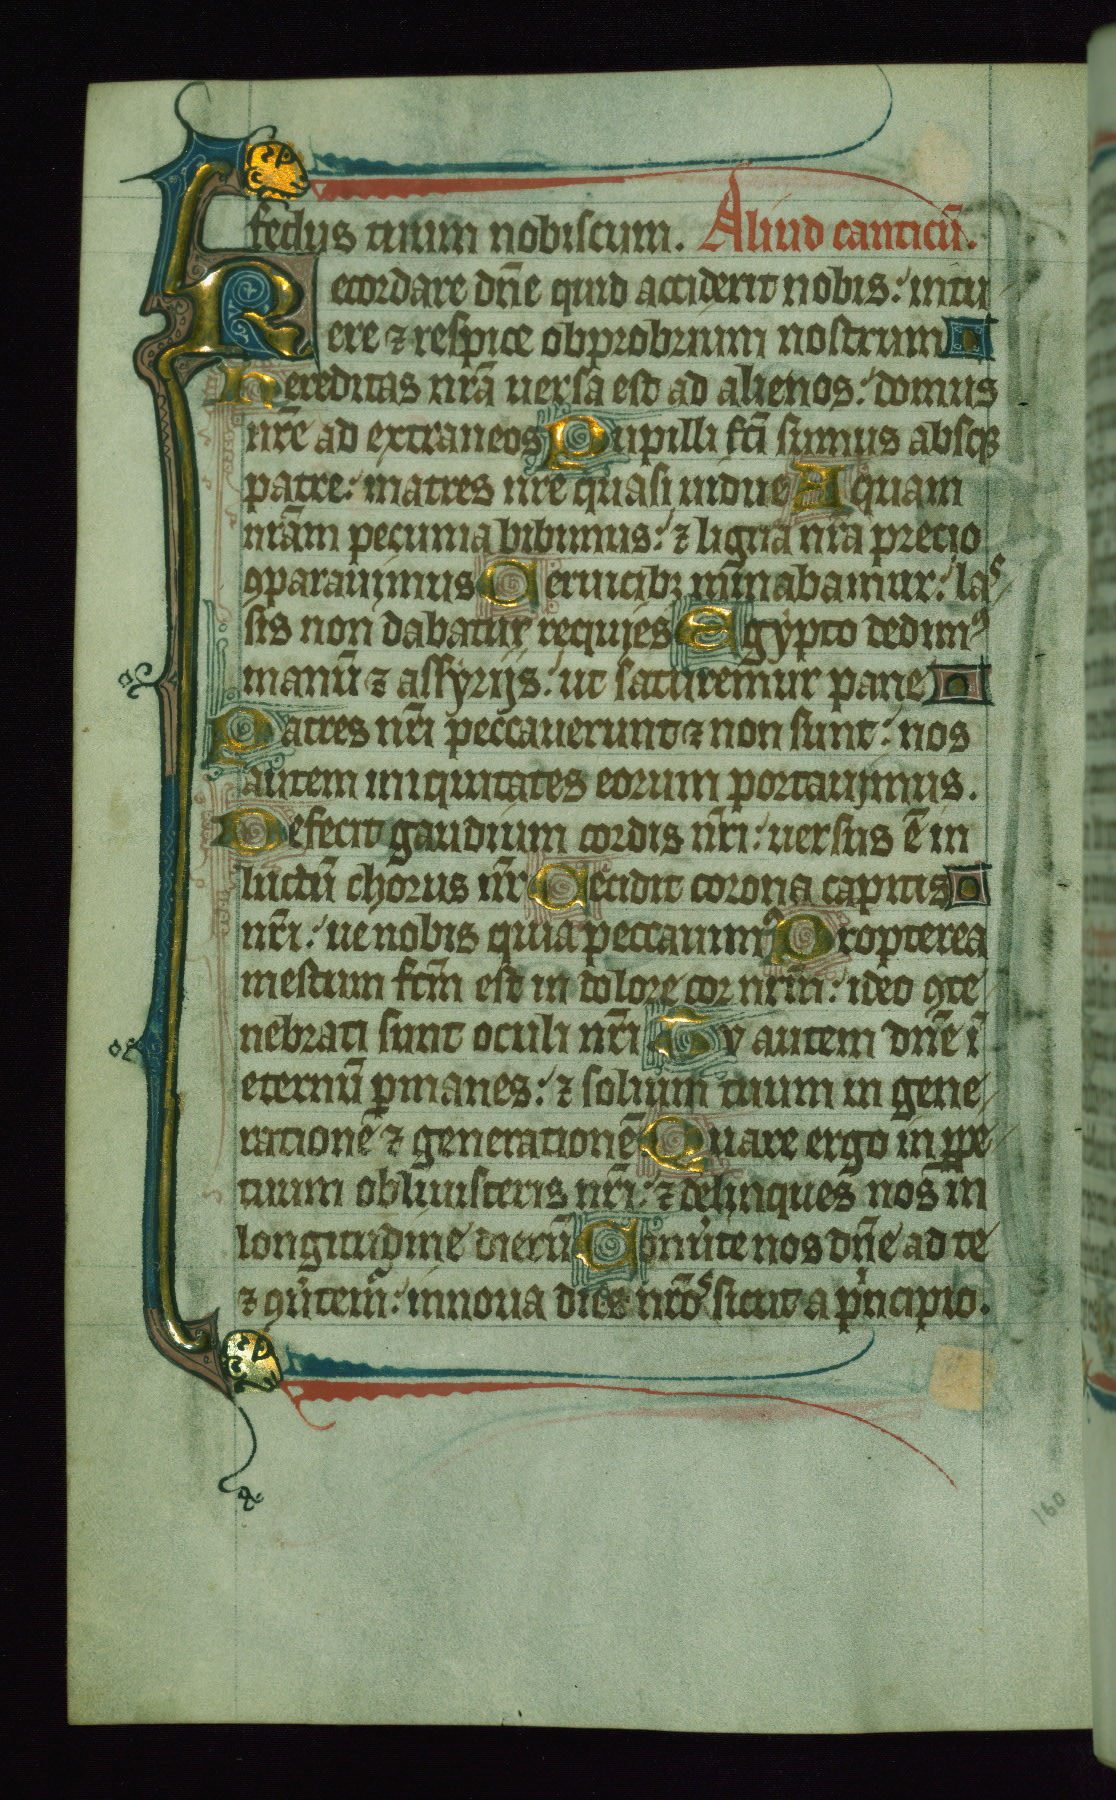 fedus tuum nobiscum. Aliud canticū.
Recordare dn̄e quid acciderit nobis: intu
ere ⁊ respice obprobrium nostrum
Hereditas nr̄a uersa est ad alienos: domus
nr̄e ad extraneos Pupilli fc̄i sumus absqꝫ
patre: matres nr̄e quasi uidue Aquam
nr̄am pecunia bibimus: ⁊ ligna nr̄a precio
ꝯparauimus Ceruicibꝫ mīnabamur: las
sis non dabatur requies Egypto dedimꝰ
manū ⁊ assyrijs: ut saturemur pane
Patres nr̄i peccauerunt ⁊ non sunt: nos
autem iniquitates eorum portauimus.
Defecit gaudium cordis nr̄i: uersus ē in
luctū chorus nr̄ Cecidit corona capitis
nr̄i: ue nobis quia peccauimꝰ Propterea
mestum fc̄m est in dolore cor nr̄m: ideo ꝯte
nebrati sunt oculi nr̄i Tv autem dn̄e ī
eternū ꝑmanes: ⁊ solium tuum in gene
rationē ⁊ generationē Quare ergo in ꝑpe
tuum obliuisceris nr̄i: ⁊ delinques nos in
longitudine dierū Conu̾te nos dn̄e ad te
⁊ ꝯu̾temur: innoua dies nr̄os sicut a pͥncipio.
160